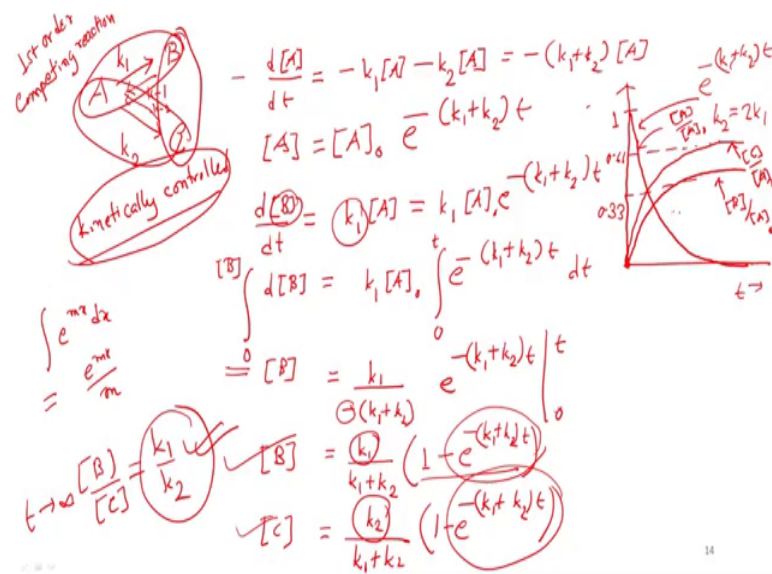 1st order
competing reaction
A
k₁
B
k₂
C
kinetically controlled
- d[A]/dt = -k₁[A] - k₂[A] = -(k₁+k₂)[A]
[A] = [A]₀ e^-(k₁+k₂)t
d[B]/dt = k₁[A] = k₁[A]₀ e^-(k₁+k₂)t
∫₀^[B] d[B] = k₁[A]₀ ∫₀^t e^-(k₁+k₂)t dt
∫e^mx dx
= e^mx/m
= [B] = k₁/-(k₁+k₂) e^-(k₁+k₂)t |₀^t
[B] = k₁/k₁+k₂ (1-e^-(k₁+k₂)t)
[C] = k₂/k₁+k₂ (1-e^-(k₁+k₂)t)
t→∞ [B]/[C] = k₁/k₂
e^-(k₁+k₂)t
1
[A]/[A]₀
k₂=2k₁
[C]/[A]₀
[B]/[A]₀
0.33
t→
14